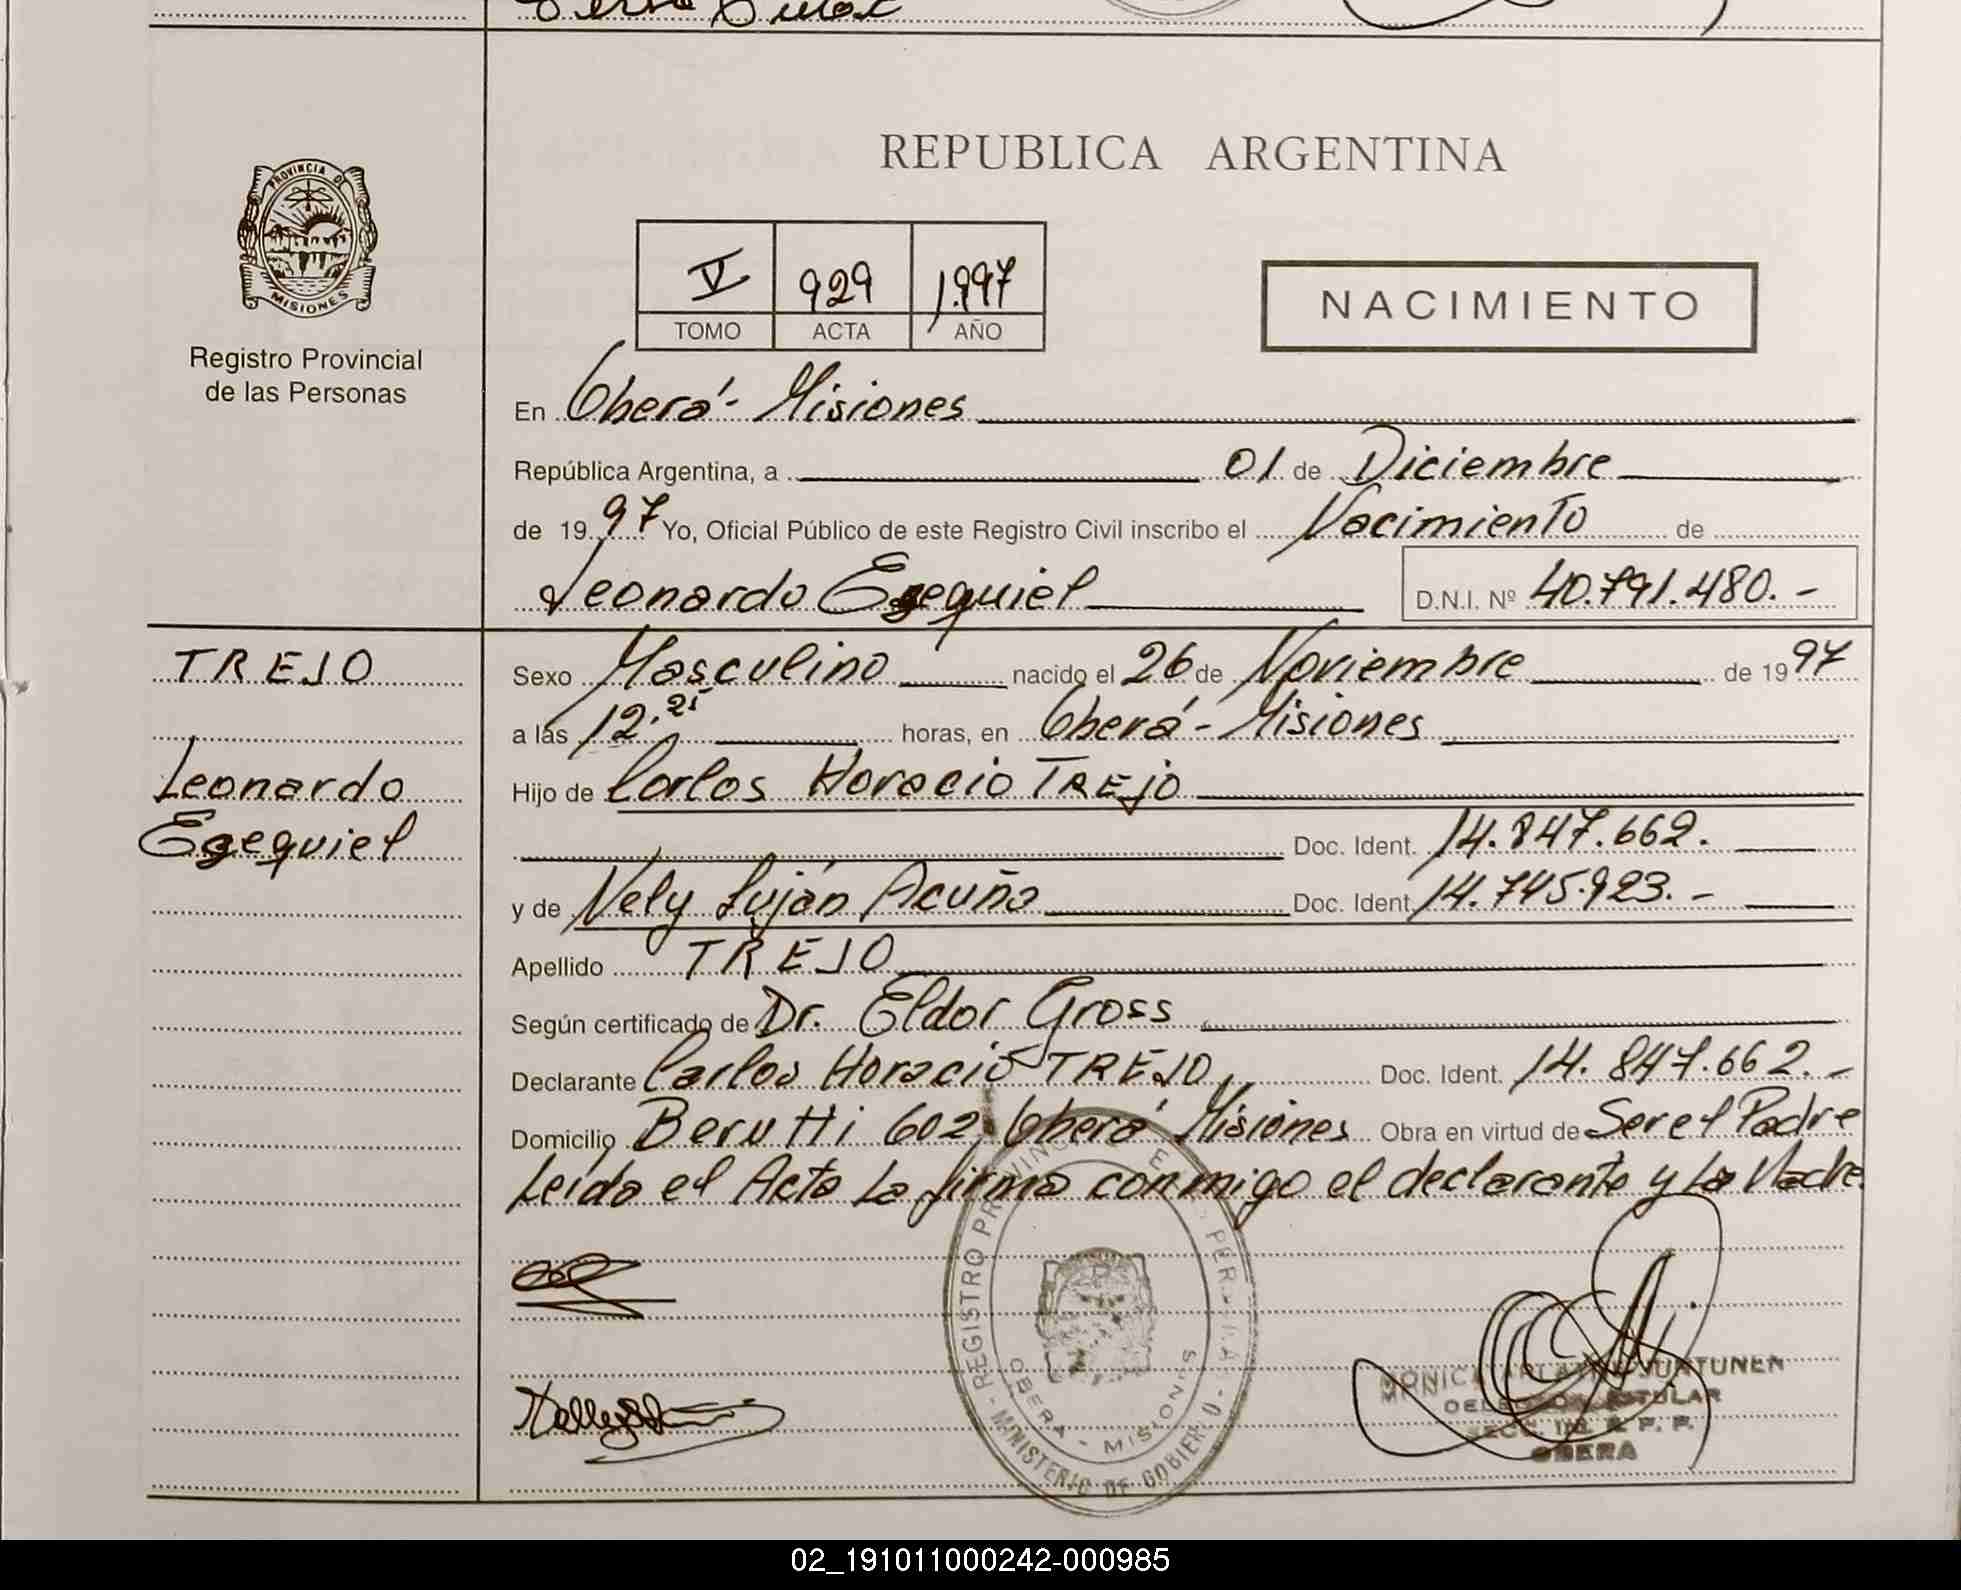 PROVINCIA DE
MISIONES
Registro Provincial
de las Personas
REPUBLICA ARGENTINA
V 929 1.997
TOMO ACTA AÑO
NACIMIENTO
En Oberá - Misiones
República Argentina, a 01 de Diciembre
de 1997 Yo, Oficial Público de este Registro Civil inscribo el Nacimiento de
Leonardo Ezequiel D.N.I. Nº 40.791.480.-
TREJO
Leonardo
Ezequiel
Sexo Masculino nacido el 26 de Noviembre de 1997
a las 12.21 horas, en Oberá - Misiones
Hijo de Carlos Horacio TREJO
Doc. Ident. 14.847.662.
y de Nely Luján Acuña Doc. Ident. 14.745.923.-
Apellido TREJO
Según certificado de Dr. Eldor Gross
Declarante Carlos Horacio TREJO Doc. Ident. 14.847.662.-
Domicilio Berutti 602, Oberá Misiones Obra en virtud de Ser el Padre
Leída el Acta La firma conmigo el declarante y La Madre.
REGISTRO PROVINCIAL DE LAS PERSONAS
OBERA - MISIONES
- MINISTERIO DE GOBIERNO -
MONICA JUNTUNEN
TITULAR
OBERA
02_191011000242-000985